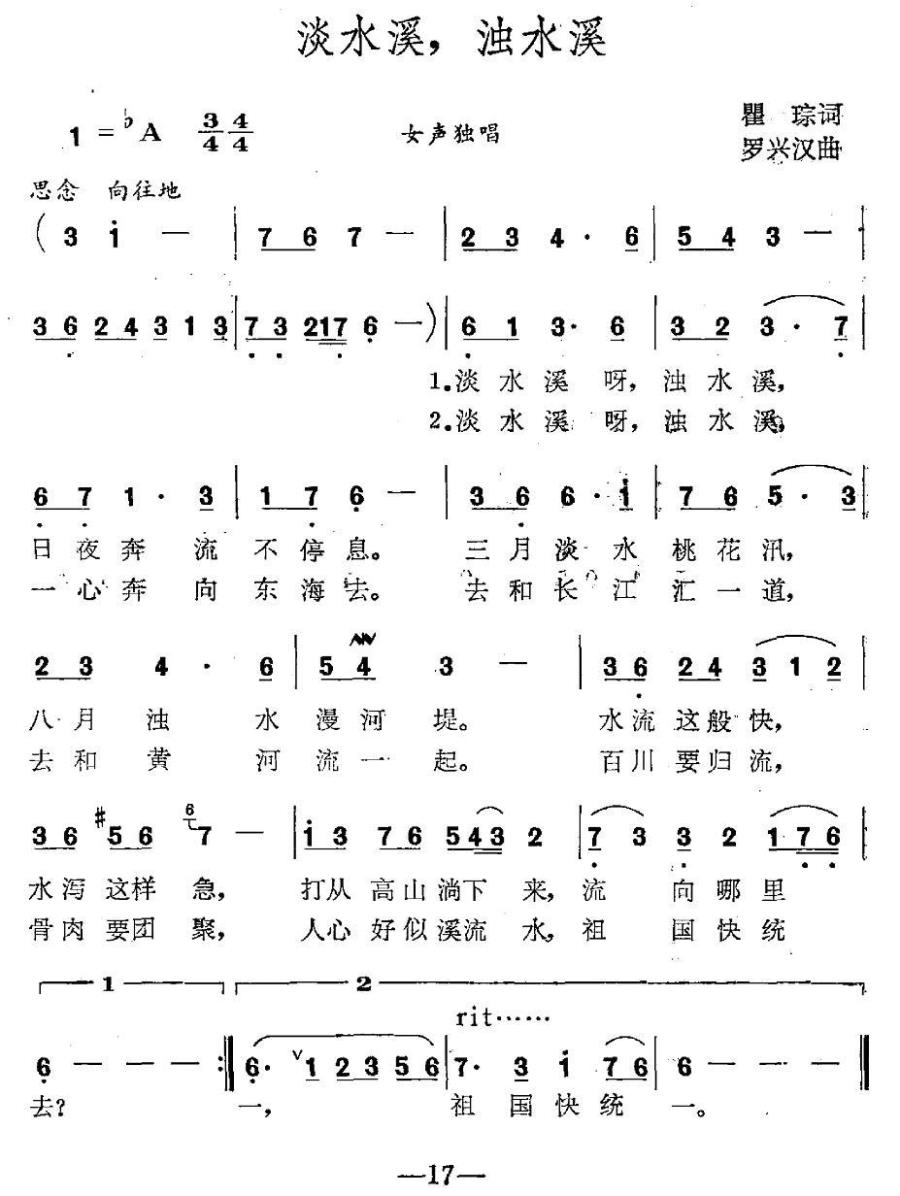 淡水溪，浊水溪
1 = ♭A 3/4 4/4 女声独唱
瞿 琮词
罗兴汉曲
思念 向往地
( 3 i — | 7 6 7 — | 2 3 4 · 6 | 5 4 3 — |
3 6 2 4 3 1 3 | 7 3 217 6 — ) | 6 1 3 · 6 | 3 2 3 · 7
1.淡 水 溪 呀，浊 水 溪，
2.淡 水 溪 呀，浊 水 溪，
6 7 1 · 3 | 1 7 6 — | 3 6 6 · i | 7 6 5 · 3
日 夜 奔 流 不 停 息。 三 月 淡 水 桃 花 汛，
一 心 奔 向 东 海 去。 去 和 长 江 汇 一 道，
2 3 4 · 6 | 5 4 3 — | 3 6 2 4 3 1 2
八 月 浊 水 漫 河 堤。 水 流 这 般 快，
去 和 黄 河 流 一 起。 百 川 要 归 流，
3 6 #5 6 6 7 — | i 3 7 6 5 4 3 2 | 7 3 3 2 1 7 6 |
水 泻 这 样 急， 打 从 高 山 淌 下 来， 流 向 哪 里
骨 肉 要 团 聚， 人 心 好 似 溪 流 水， 祖 国 快 统
1 2
rit······
6 — — — :| 6 · ∨ 1 2 3 5 6 | 7 · 3 i 7 6 | 6 — — — |
去？ 一， 祖 国 快 统 一。
—17—